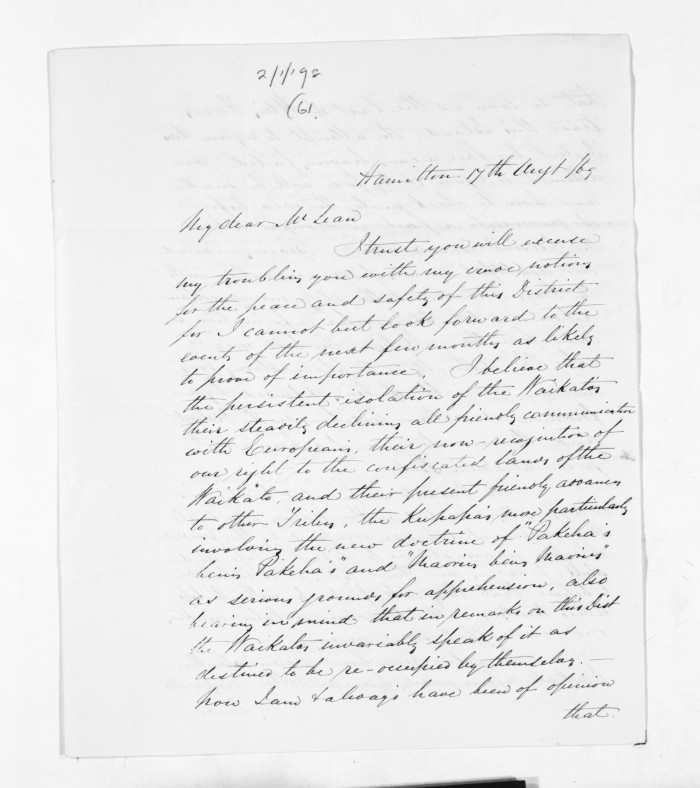 2/1/198
(61.
Hamilton 17th Augt /69
My dear McLean
I trust you will excuse
my troubling you with my notions
for the peace and safety of this District
for I cannot but look forward to the
events of the next few months as likely
to prove of importance. I believe that
the persistent isolation of the Waikatos
their steadily declining all friendly communication
with Europeans, their non-recognition of
our right to the confiscated lands of the
Waikato, and their present friendly advances
to other Tribes, the Kupapa's more particularly
involving the new doctrine of "Pakeha's
being Pakeha's" and "Maories being Maories"
as serious grounds for apprehension, also
bearing in mind that in remarks on this Dist
the Waikatos invariably speak of it as
destined to be re-occupied by themselves. —
now I am & always have been of opinion
that